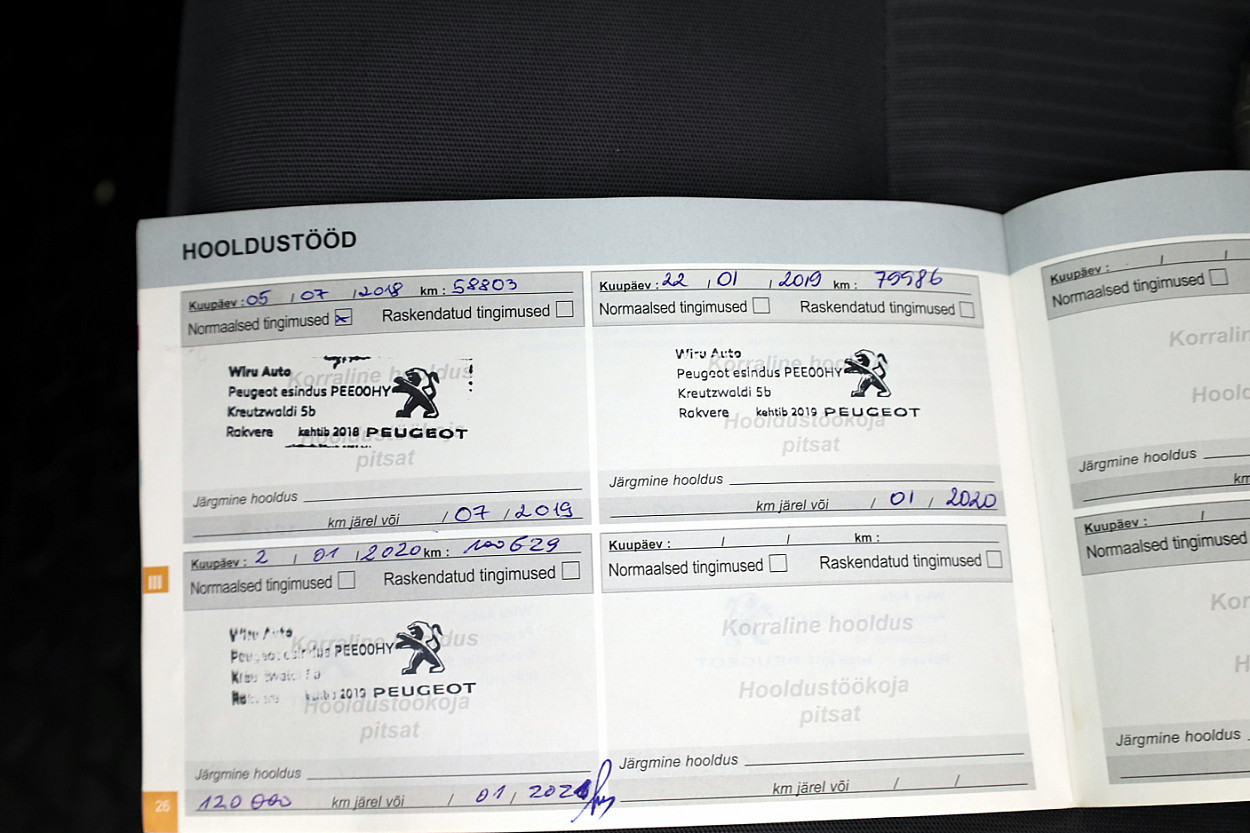 HOOLDUSTÖÖD
Kuupäev : 05 / 07 / 2018 km : 58803
Normaalsed tingimused Raskendatud tingimused
Korraline hooldus
Wiru Auto
Peugeot esindus PEE00HY
Kreutzwaldi 5b
Rakvere kehtib 2018 PEUGEOT
Hooldustöökoja
pitsat
Järgmine hooldus
km järel või / 07 / 2019
Kuupäev : 22 / 01 / 2019 km : 79986
Normaalsed tingimused Raskendatud tingimused
Wiru Auto
Korraline hooldus
Peugeot esindus PEE00HY
Kreutzwaldi 5b
Rakvere kehtib 2019 PEUGEOT
Hooldustöökoja
pitsat
Järgmine hooldus
km järel või / 01 / 2020
Kuupäev : 2 / 01 / 2020 km : 100629
Normaalsed tingimused Raskendatud tingimused
Wiru Auto
Korraline hooldus
PEE00HY
2019 PEUGEOT
Hooldustöökoja
pitsat
Järgmine hooldus
120 000 km järel või / 01 / 2021
Kuupäev : / / km :
Normaalsed tingimused Raskendatud tingimused
Korraline hooldus
Hooldustöökoja
pitsat
Järgmine hooldus
km järel või / /
III
26
Kuupäev : / /
Normaalsed tingimused
Järgmine hooldus
km
Kuupäev : /
Normaalsed tingimused
Järgmine hooldus